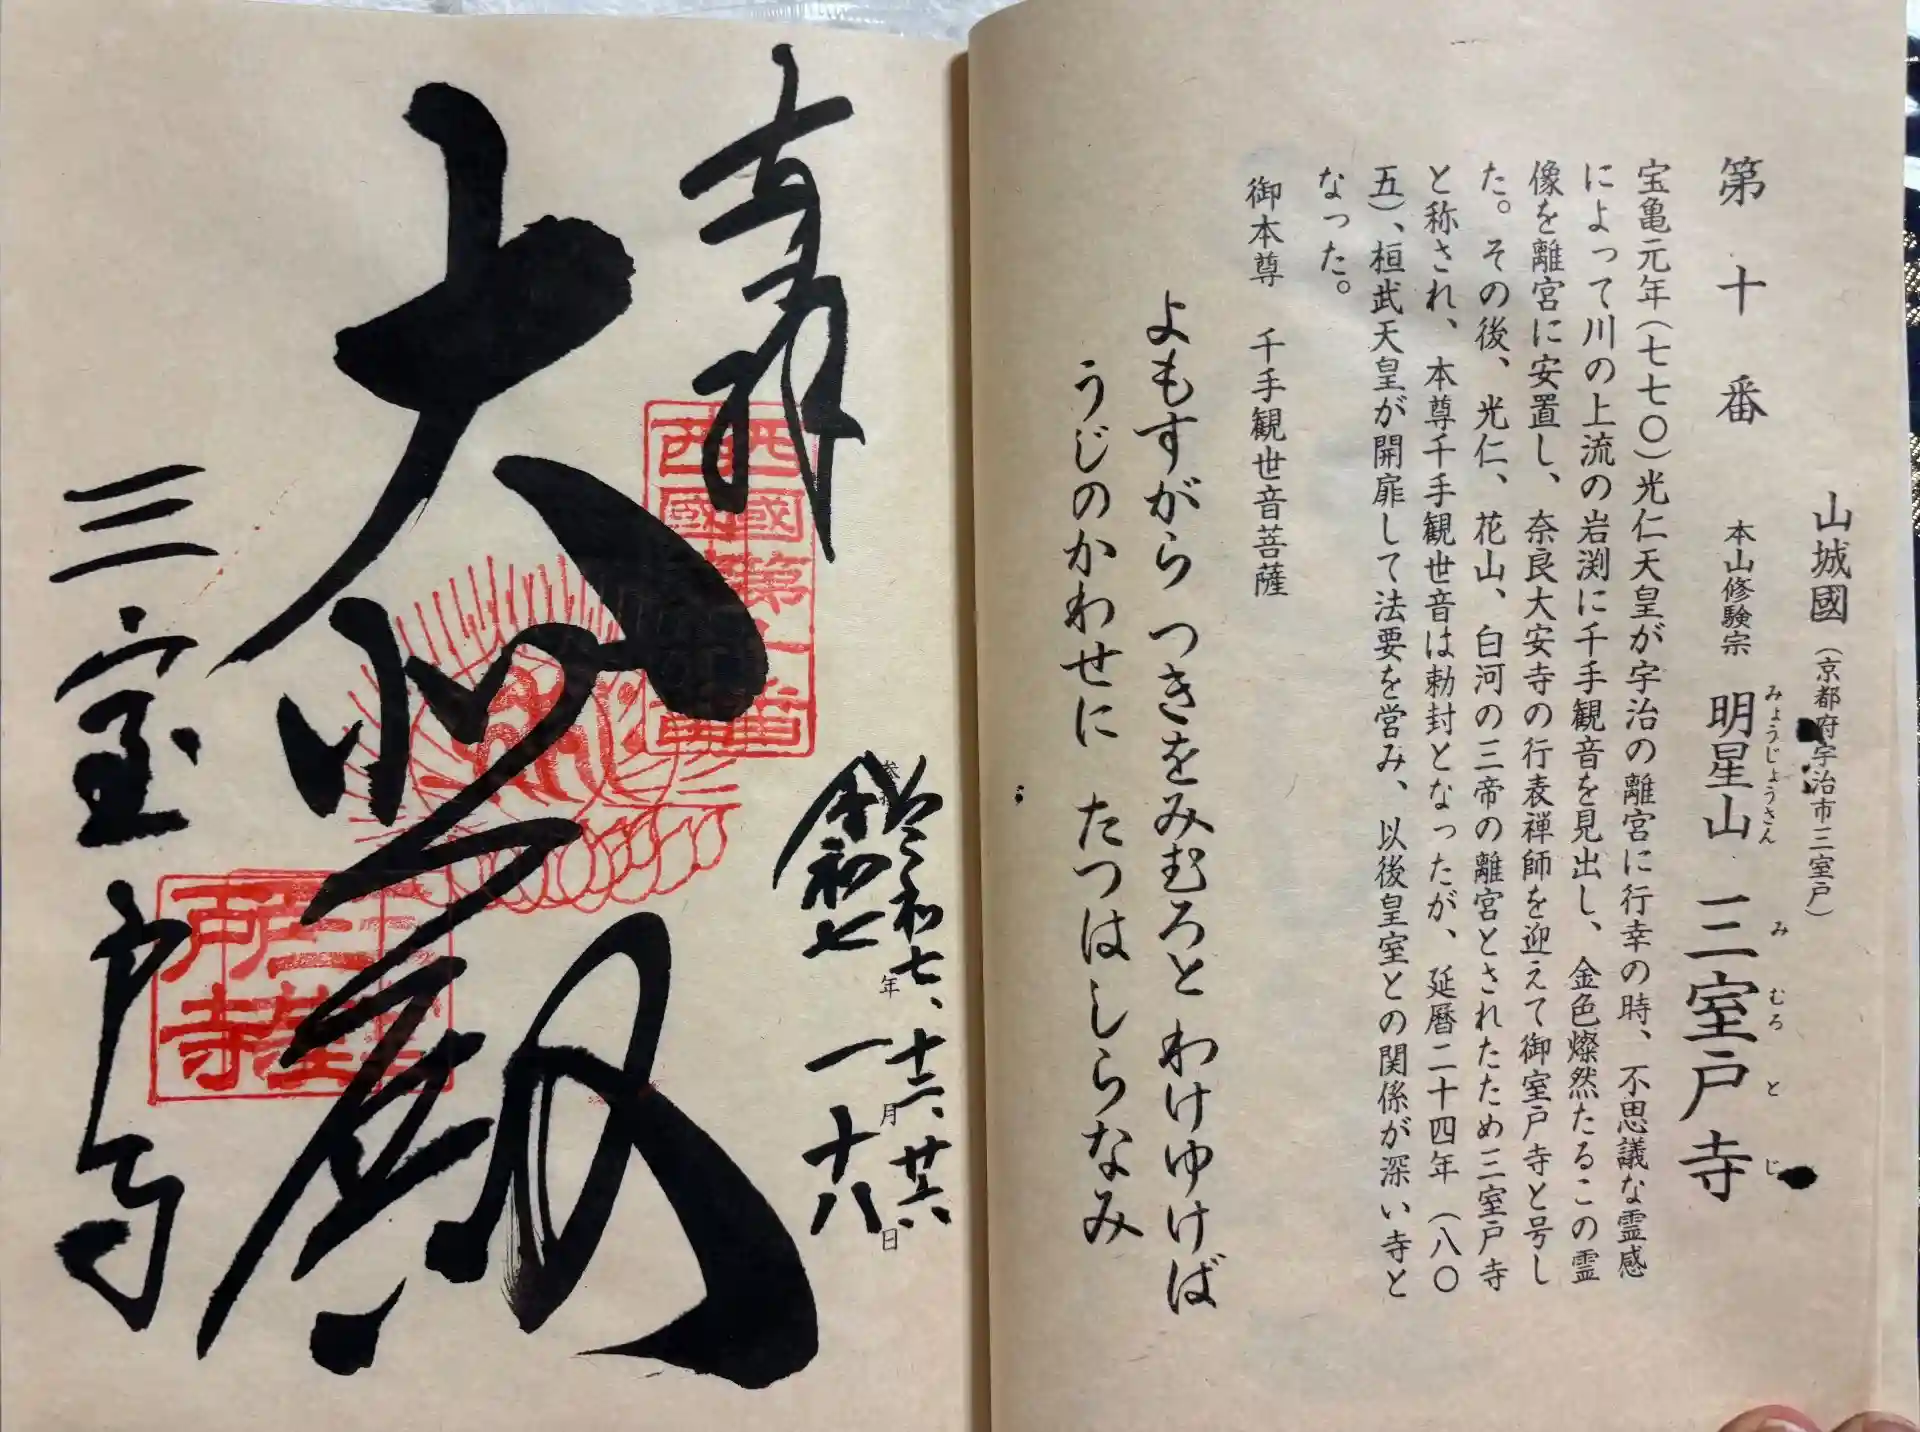 山城國（京都府宇治市三室戸）
第十番　本山修験宗　明星山　三室戸寺
みょうじょうさん　みむろとじ
宝亀元年（七七〇）光仁天皇が宇治の離宮に行幸の時、不思議な霊感
によって川の上流の岩渕に千手観音を見出し、金色燦然たるこの霊
像を離宮に安置し、奈良大安寺の行表禅師を迎えて御室戸寺と号し
た。その後、光仁、花山、白河の三帝の離宮とされたため三室戸寺
と称され、本尊千手観世音は勅封となったが、延暦二十四年（八〇
五）、桓武天皇が開扉して法要を営み、以後皇室との関係が深い寺と
なった。
御本尊　千手観世音菩薩
よもすがら　つきをみむろと　わけゆけば
うじのかわせに　たつはしらなみ
奉拝
令和七、十二、廿六、
参 年 月 日
令和七 一 十八
西國第十番
大悲殿
三室戸寺
三室戸寺